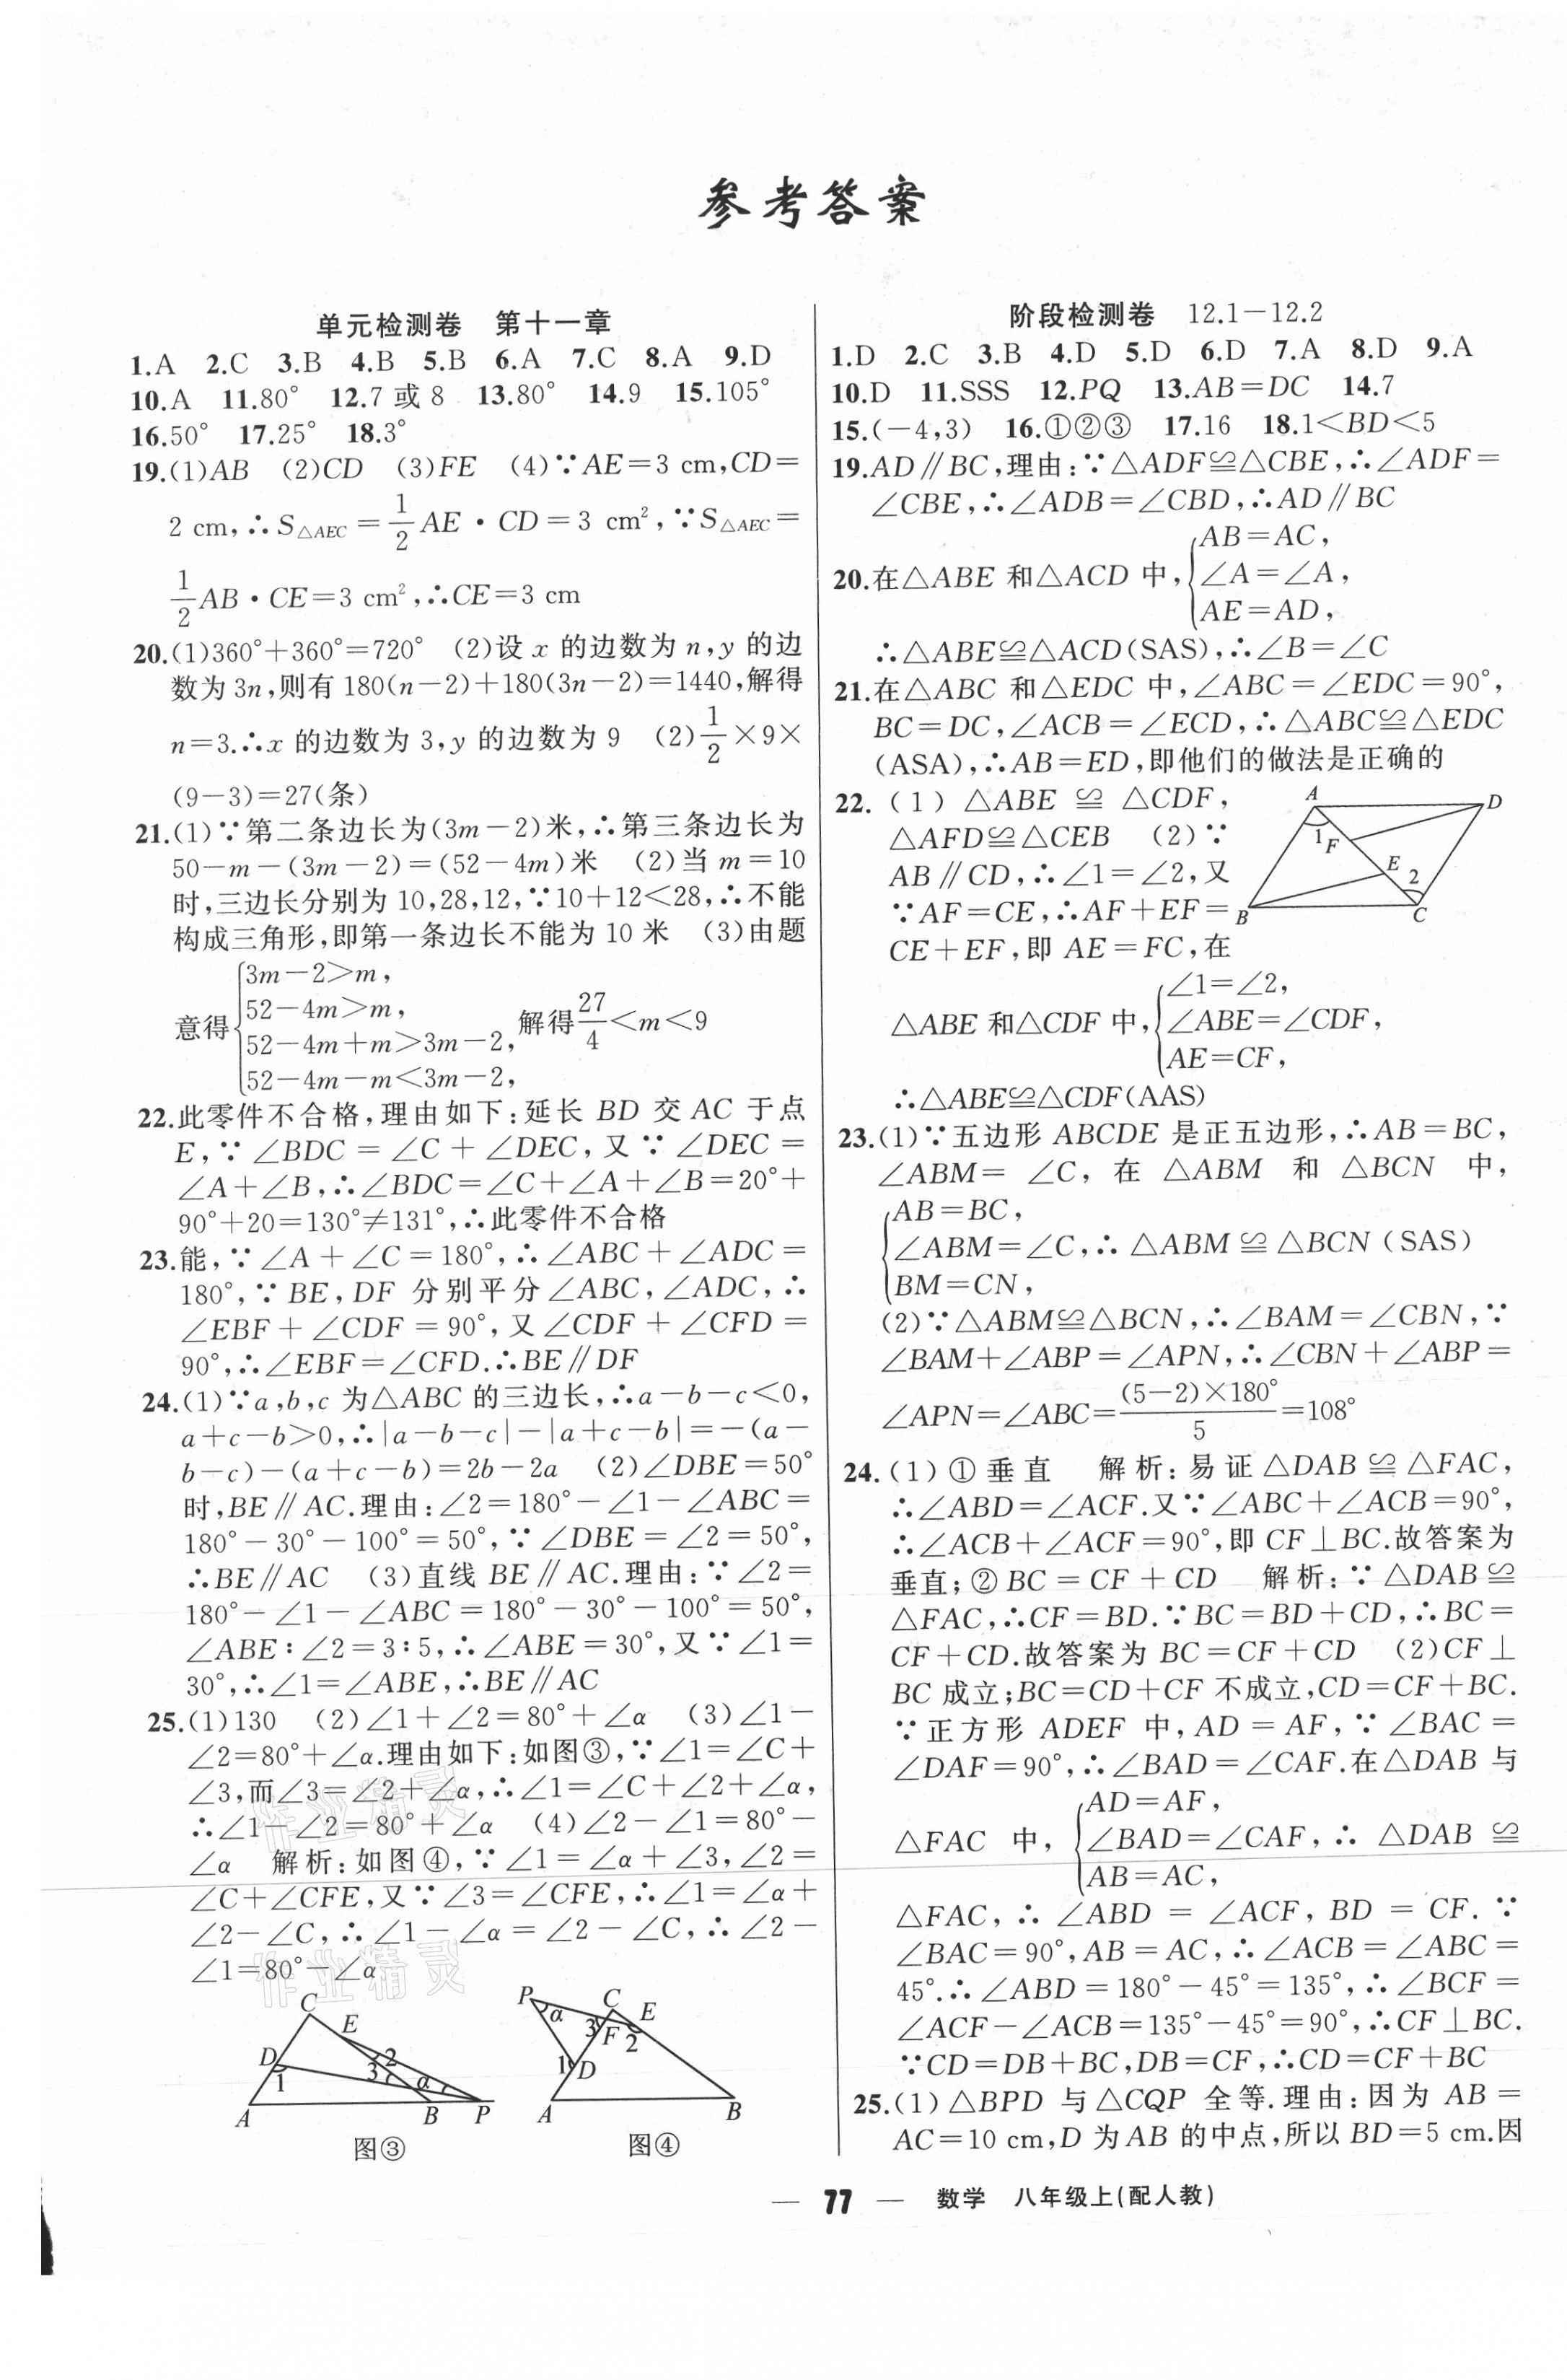 参考答案
单元检测卷 第十一章
1.A 2.C 3.B 4.B 5.B 6.A 7.C 8.A 9.D
10.A 11.80° 12.7 或 8 13.80° 14.9 15.105°
16.50° 17.25° 18.3°
19.(1)AB (2)CD (3)FE (4)∵AE=3 cm,CD=
2 cm,∴S△AEC=1/2AE·CD=3 cm²,∵S△AEC=
1/2AB·CE=3 cm²,∴CE=3 cm
20.(1)360°+360°=720° (2)设 x 的边数为 n,y 的边
数为 3n,则有 180(n-2)+180(3n-2)=1440,解得
n=3.∴x 的边数为 3,y 的边数为 9 (2)1/2×9×
(9-3)=27(条)
21.(1)∵第二条边长为(3m-2)米,∴第三条边长为
50-m-(3m-2)=(52-4m)米 (2)当 m=10
时,三边长分别为 10,28,12,∵10+12<28,∴不能
构成三角形,即第一条边长不能为 10 米 (3)由题
3m-2>m,
52-4m>m,
意得{ 解得27/4<m<9
52-4m+m>3m-2,
52-4m-m<3m-2,
22.此零件不合格,理由如下:延长 BD 交 AC 于点
E,∵∠BDC=∠C+∠DEC,又∵∠DEC=
∠A+∠B,∴∠BDC=∠C+∠A+∠B=20°+
90°+20=130°≠131°,∴此零件不合格
23.能,∵∠A+∠C=180°,∴∠ABC+∠ADC=
180°,∵BE,DF 分别平分∠ABC,∠ADC,∴
∠EBF+∠CDF=90°,又∠CDF+∠CFD=
90°,∴∠EBF=∠CFD.∴BE∥DF
24.(1)∵a,b,c 为△ABC 的三边长,∴a-b-c<0,
a+c-b>0,∴|a-b-c|-|a+c-b|=-(a-
b-c)-(a+c-b)=2b-2a (2)∠DBE=50°
时,BE∥AC.理由:∠2=180°-∠1-∠ABC=
180°-30°-100°=50°,∵∠DBE=∠2=50°,
∴BE∥AC (3)直线 BE∥AC.理由:∵∠2=
180°-∠1-∠ABC=180°-30°-100°=50°,
∠ABE∶∠2=3∶5,∴∠ABE=30°,又∵∠1=
30°,∴∠1=∠ABE,∴BE∥AC
25.(1)130 (2)∠1+∠2=80°+∠α (3)∠1-
∠2=80°+∠α.理由如下:如图③,∵∠1=∠C+
∠3,而∠3=∠2+∠α,∴∠1=∠C+∠2+∠α,
∴∠1-∠2=80°+∠α (4)∠2-∠1=80°-
∠α 解析:如图④,∵∠1=∠α+∠3,∠2=
∠C+∠CFE,又∵∠3=∠CFE,∴∠1=∠α+
∠2-∠C,∴∠1-∠α=∠2-∠C,∴∠2-
∠1=80°-∠α
作业精灵
作业精灵
C E D 1 2 3 α A B P
图③
P α C E 3 F 2 1 D A B
图④
阶段检测卷 12.1-12.2
1.D 2.C 3.B 4.D 5.D 6.D 7.A 8.D 9.A
10.D 11.SSS 12.PQ 13.AB=DC 14.7
15.(-4,3) 16.①②③ 17.16 18.1<BD<5
19.AD∥BC,理由:∵△ADF≌△CBE,∴∠ADF=
∠CBE,∴∠ADB=∠CBD,∴AD∥BC
AB=AC,
20.在△ABE 和△ACD 中,{∠A=∠A,
AE=AD,
∴△ABE≌△ACD(SAS),∴∠B=∠C
21.在△ABC 和△EDC 中,∠ABC=∠EDC=90°,
BC=DC,∠ACB=∠ECD,∴△ABC≌△EDC
(ASA),∴AB=ED,即他们的做法是正确的
22.(1)△ABE≌△CDF,
△AFD≌△CEB (2)∵
AB∥CD,∴∠1=∠2,又
∵AF=CE,∴AF+EF=
CE+EF,即 AE=FC,在
A D 1 F E 2 B C
∠1=∠2,
△ABE 和△CDF 中,{∠ABE=∠CDF,
AE=CF,
∴△ABE≌△CDF(AAS)
23.(1)∵五边形 ABCDE 是正五边形,∴AB=BC,
∠ABM=∠C,在 △ABM 和 △BCN 中,
AB=BC,
{∠ABM=∠C,∴△ABM≌△BCN(SAS)
BM=CN,
(2)∵△ABM≌△BCN,∴∠BAM=∠CBN,∵
∠BAM+∠ABP=∠APN,∴∠CBN+∠ABP=
∠APN=∠ABC=(5-2)×180°/5=108°
24.(1)①垂直 解析:易证△DAB≌△FAC,
∴∠ABD=∠ACF.又∵∠ABC+∠ACB=90°,
∴∠ACB+∠ACF=90°,即 CF⊥BC.故答案为
垂直;②BC=CF+CD 解析:∵△DAB≌
△FAC,∴CF=BD.∵BC=BD+CD,∴BC=
CF+CD.故答案为 BC=CF+CD (2)CF⊥
BC 成立;BC=CD+CF 不成立,CD=CF+BC.
∵正方形 ADEF 中,AD=AF,∵∠BAC=
∠DAF=90°,∴∠BAD=∠CAF.在△DAB 与
AD=AF,
△FAC 中,{∠BAD=∠CAF,∴△DAB≌
AB=AC,
△FAC,∴∠ABD=∠ACF,BD=CF.∵
∠BAC=90°,AB=AC,∴∠ACB=∠ABC=
45°.∴∠ABD=180°-45°=135°,∴∠BCF=
∠ACF-∠ACB=135°-45°=90°,∴CF⊥BC.
∵CD=DB+BC,DB=CF,∴CD=CF+BC
25.(1)△BPD 与△CQP 全等.理由:因为 AB=
AC=10 cm,D 为 AB 的中点,所以 BD=5 cm.因
— 77 — 数学 八年级上(配人教)